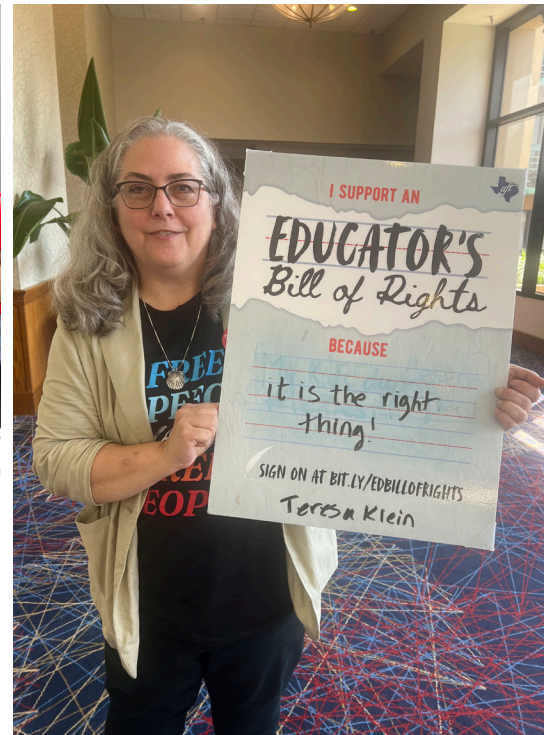 I SUPPORT AN
aft
EDUCATOR'S
Bill of Rights
BECAUSE
it is the right
thing!
SIGN ON AT BIT.LY/EDBILLOFRIGHTS
Teresa Klein
FREE
PEOP